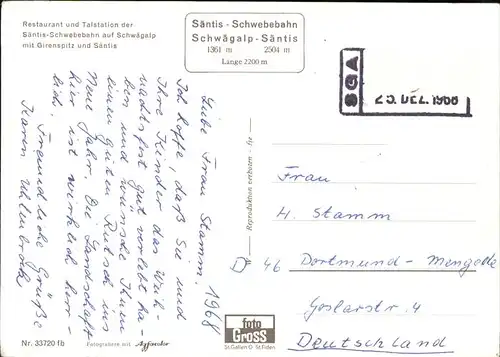 Restaurant und Talstation der
Säntis-Schwebebahn auf Schwägalp
mit Girenspitz und Säntis
Säntis - Schwebebahn
Schwägalp - Säntis
1361 m 2504 m
Länge 2200 m
SGA
23. DEZ. 1968
1968
Liebe Frau Stamm!
Ich hoffe, daß Sie und
Ihre Kinder das Weih-
nachtsfest gut verlebt ha-
ben und wünsche Ihnen
einen guten Rutsch ins
Neue Jahr. Die Landschaft
hier ist wirklich herr-
lich. Freundliche Grüße
Karen Uhlenbrock
Reproduktion verboten - fir -
Frau
H. Stamm
D 46 Dortmund-Mengede
Goslarstr. 4
Deutschland
foto
GROSS
St.Gallen O St.Fiden
Nr. 33720 fb
Fotografiere mit Agfacolor